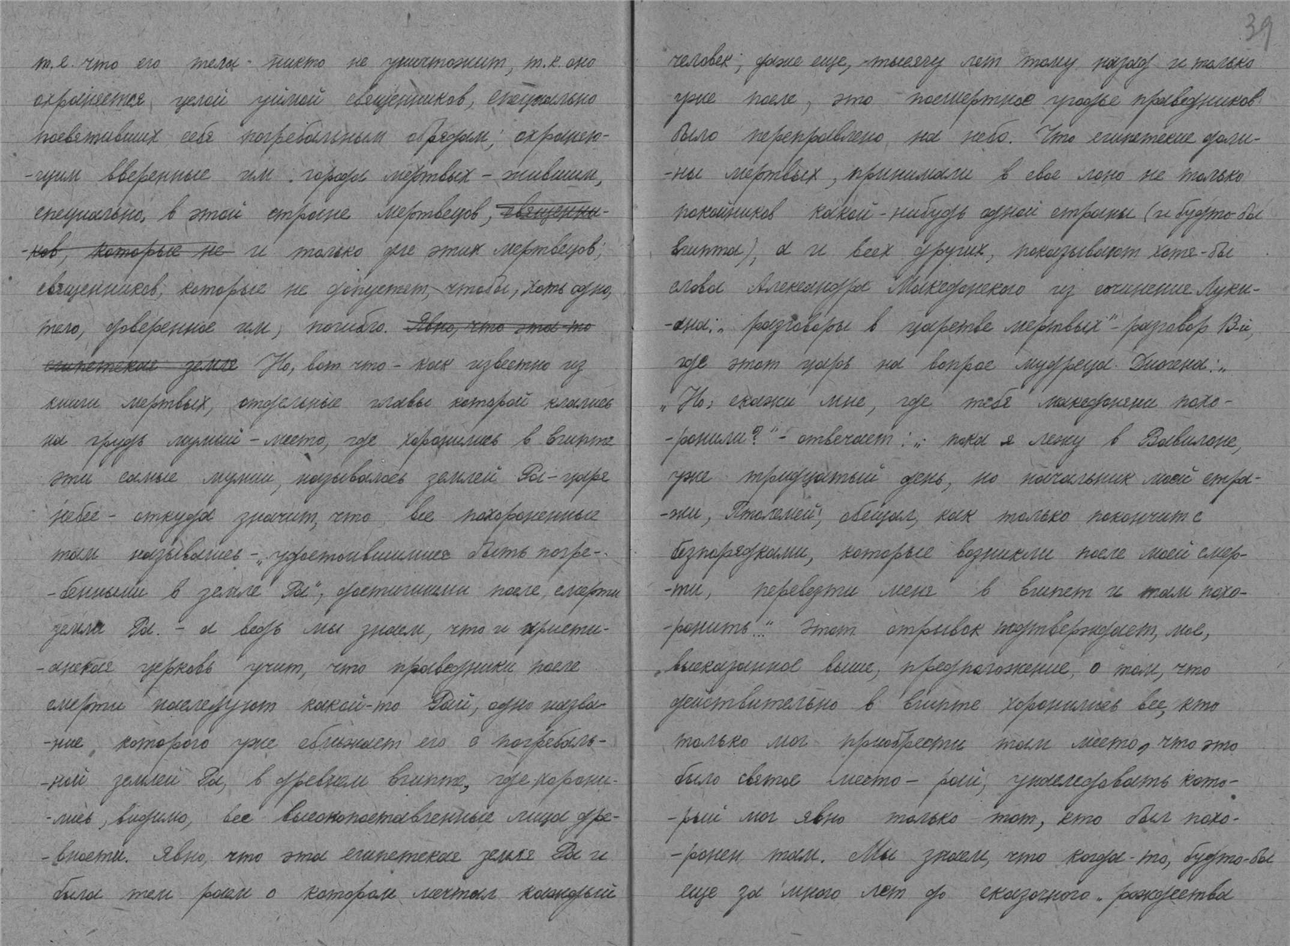 т.е. что его тела никто не уничтожит, т.к. оно
охраняется целой уймой священников, специально
посвятивших себя погребальным обрядам; охраняю-
-щим вверенные им города мертвых – жившим,
специально, в этой стране мертвецов, священни-
-ков, которые не и только для этих мертвецов;
священников, которые не допустят, чтобы, хоть одно,
тело, доверенное им, погибло. Явно, что эта то
египетская земля Но, вот что – как известно из
книги мертвых, отдельные главы которой клались
на грудь мумий – место, где хоронились в Египте
эти самые мумии, называлось землей Ра – царя
небес – откуда значит, что все похороненные
там назывались – „удостоившимися быть погре-
-бенными в земле Ра“, достигшими после смерти
земли Ра. – а ведь мы знаем, что и христи-
-анская церковь учит, что праведники после
смерти наследуют какой-то Рай, одно назва-
-ние, которого уже сближает его с погребаль-
-ной землей Ра, в древнем Египте, где хорони-
-лись, видимо, все высокопоставленные лица дре-
-вности. Явно, что эта египетская земля Ра и
была тем раем о котором мечтал каждый
39
человек; даже еще, тысячу лет тому назад и только
уже после, это посмертное угодье праведников
было переправлено на небо. Что египетские доли-
-ны мертвых, принимали в свое лоно не только
покойников какой-нибудь одной страны (и будто-бы
Египта), а и всех других, показывают хотя-бы
слова Александра Македонского из сочинения Луки-
-ана: „разговоры в царстве мертвых“ – разговор 13й,
где этот царь на вопрос мудреца Диогена: „
„Но, скажи мне, где тебя македоняне похо-
-ронили?“ – отвечает: „пока я лежу в Вавилоне,
уже тридцатый день, но начальник моей стра-
-жи, Птолемей, обещал, как только покончит с
безпорядками, которые возникли после моей смер-
-ти, перевезти меня в Египет и там похо-
-ронить...“ Этот отрывок подтверждает, мое,
высказанное выше, предположение, о том, что
действительно в Египте хоронились все, кто
только мог приобрести там место, что это
было святое место – рай, унаследовать кото-
-рый мог явно только тот, кто был похо-
-ронен там. Мы знаем, что когда-то, будто-бы
еще за много лет до сказочного рождества